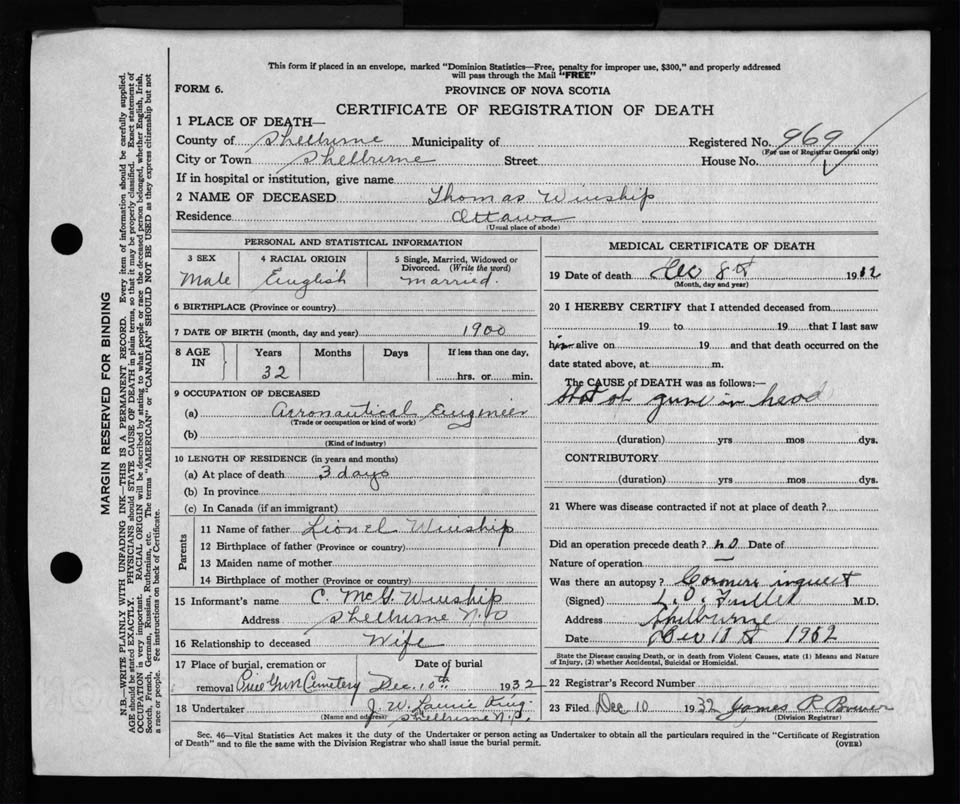 This form if placed in an envelope, marked "Dominion Statistics—Free, penalty for improper use, $300," and properly addressed
will pass through the Mail "FREE"
FORM 6.
PROVINCE OF NOVA SCOTIA
CERTIFICATE OF REGISTRATION OF DEATH
1 PLACE OF DEATH—
County of Shelburne Municipality of Registered No. 969
(For use of Registrar General only)
City or Town Shelburne Street House No.
If in hospital or institution, give name
2 NAME OF DECEASED Thomas Winship
Residence Ottawa
(Usual place of abode)
PERSONAL AND STATISTICAL INFORMATION
3 SEX
Male
4 RACIAL ORIGIN
English
5 Single, Married, Widowed or
Divorced. (Write the word)
married.
6 BIRTHPLACE (Province or country)
7 DATE OF BIRTH (month, day and year) 1900
8 AGE
IN
Years
32
Months
Days
If less than one day,
hrs. or min.
9 OCCUPATION OF DECEASED
(a) Aeronautical Engineer
(Trade or occupation or kind of work)
(b)
(Kind of industry)
10 LENGTH OF RESIDENCE (in years and months)
(a) At place of death 3 days
(b) In province
(c) In Canada (if an immigrant)
Parents
11 Name of father Lionel Winship
12 Birthplace of father (Province or country)
13 Maiden name of mother
14 Birthplace of mother (Province or country)
15 Informant's name C. McG. Winship
Address Shelburne N.S
16 Relationship to deceased Wife
17 Place of burial, cremation or
removal Pine Grove Cemetery
Date of burial
Dec. 10th 1932
18 Undertaker J. W. Laurie King
(Name and address) Shelburne N.S.
MEDICAL CERTIFICATE OF DEATH
19 Date of death Dec 8th 1932
(Month, day and year)
20 I HEREBY CERTIFY that I attended deceased from
19 to 19 that I last saw
him alive on 19 and that death occurred on the
date stated above, at m.
The CAUSE of DEATH was as follows:—
Shot of gun in head
(duration) yrs mos dys.
CONTRIBUTORY
(duration) yrs mos dys.
21 Where was disease contracted if not at place of death?
Did an operation precede death? no Date of
Nature of operation —
Was there an autopsy? Coroners inquest
(Signed) L.O. Fuller M.D.
Address Shelburne
Date Dec 1932
State the Disease causing Death, or in death from Violent Causes, state (1) Means and Nature
of Injury, (2) whether Accidental, Suicidal or Homicidal.
22 Registrar's Record Number
23 Filed Dec 10 1932 James R Bower
(Division Registrar)
Sec. 46—Vital Statistics Act makes it the duty of the Undertaker or person acting as Undertaker to obtain all the particulars required in the "Certificate of Registration
of Death" and to file the same with the Division Registrar who shall issue the burial permit. (OVER)
MARGIN RESERVED FOR BINDING
N.B.—WRITE PLAINLY WITH UNFADING INK—THIS IS A PERMANENT RECORD. Every item of information should be carefully supplied.
AGE should be stated EXACTLY. PHYSICIANS should STATE CAUSE OF DEATH in plain terms, so that it may be properly classified. Exact statement of
OCCUPATION is very important. RACIAL ORIGIN will be described by stating to what people or race the deceased person belonged, whether English, Irish,
Scotch, French, German, Russian, Ruthenian, etc. The terms "AMERICAN" or "CANADIAN" SHOULD NOT BE USED as they express citizenship but not
a race or people. Fee instructions on back of Certificate.